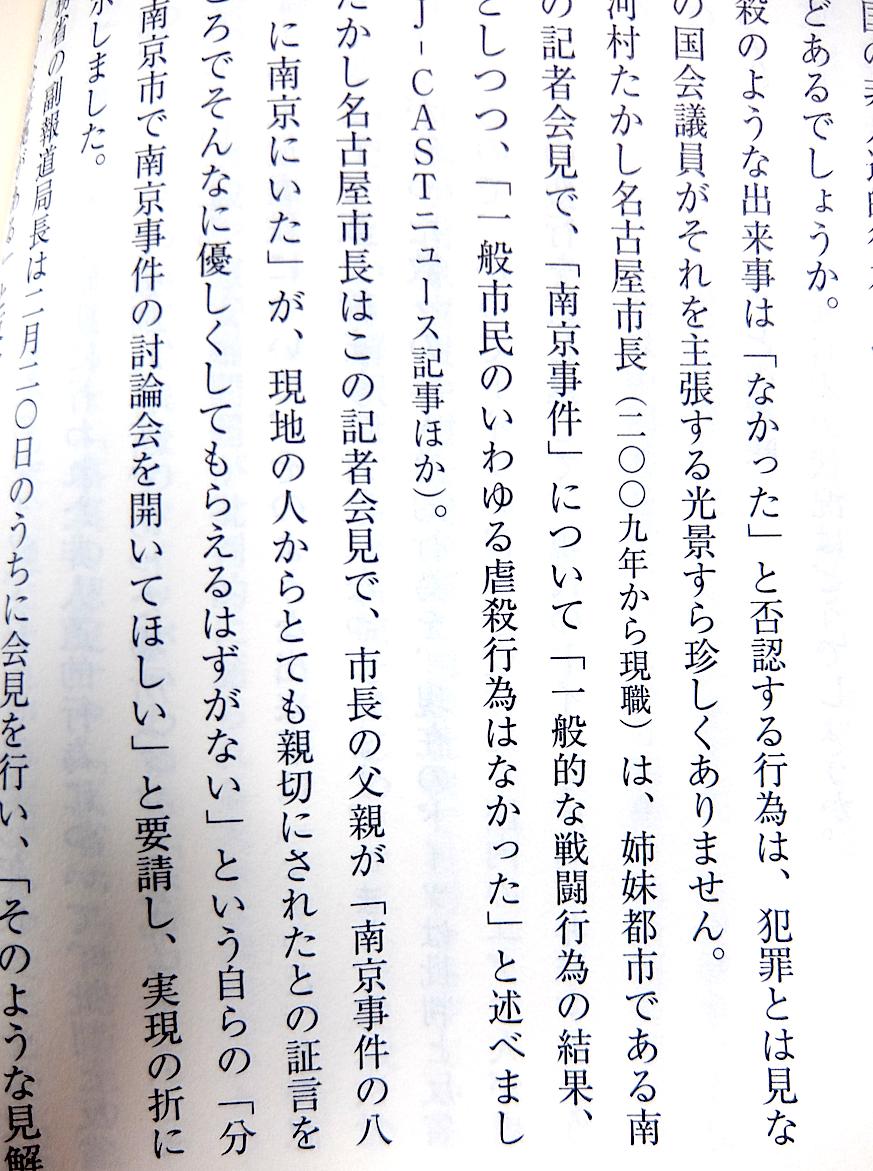 どあるでしょうか。
殺のような出来事は「なかった」と否認する行為は、犯罪とは見な
の国会議員がそれを主張する光景すら珍しくありません。
河村たかし名古屋市長（二〇〇九年から現職）は、姉妹都市である南
の記者会見で、「南京事件」について「一般的な戦闘行為の結果、
としつつ、「一般市民のいわゆる虐殺行為はなかった」と述べまし
J-CASTニュース記事ほか）。
たかし名古屋市長はこの記者会見で、市長の父親が「南京事件の八
に南京にいた」が、現地の人からとても親切にされたとの証言を
ころでそんなに優しくしてもらえるはずがない」という自らの「分
南京市で南京事件の討論会を開いてほしい」と要請し、実現の折に
示しました。
務省の副報道局長は二月二〇日のうちに会見を行い、「そのような見解